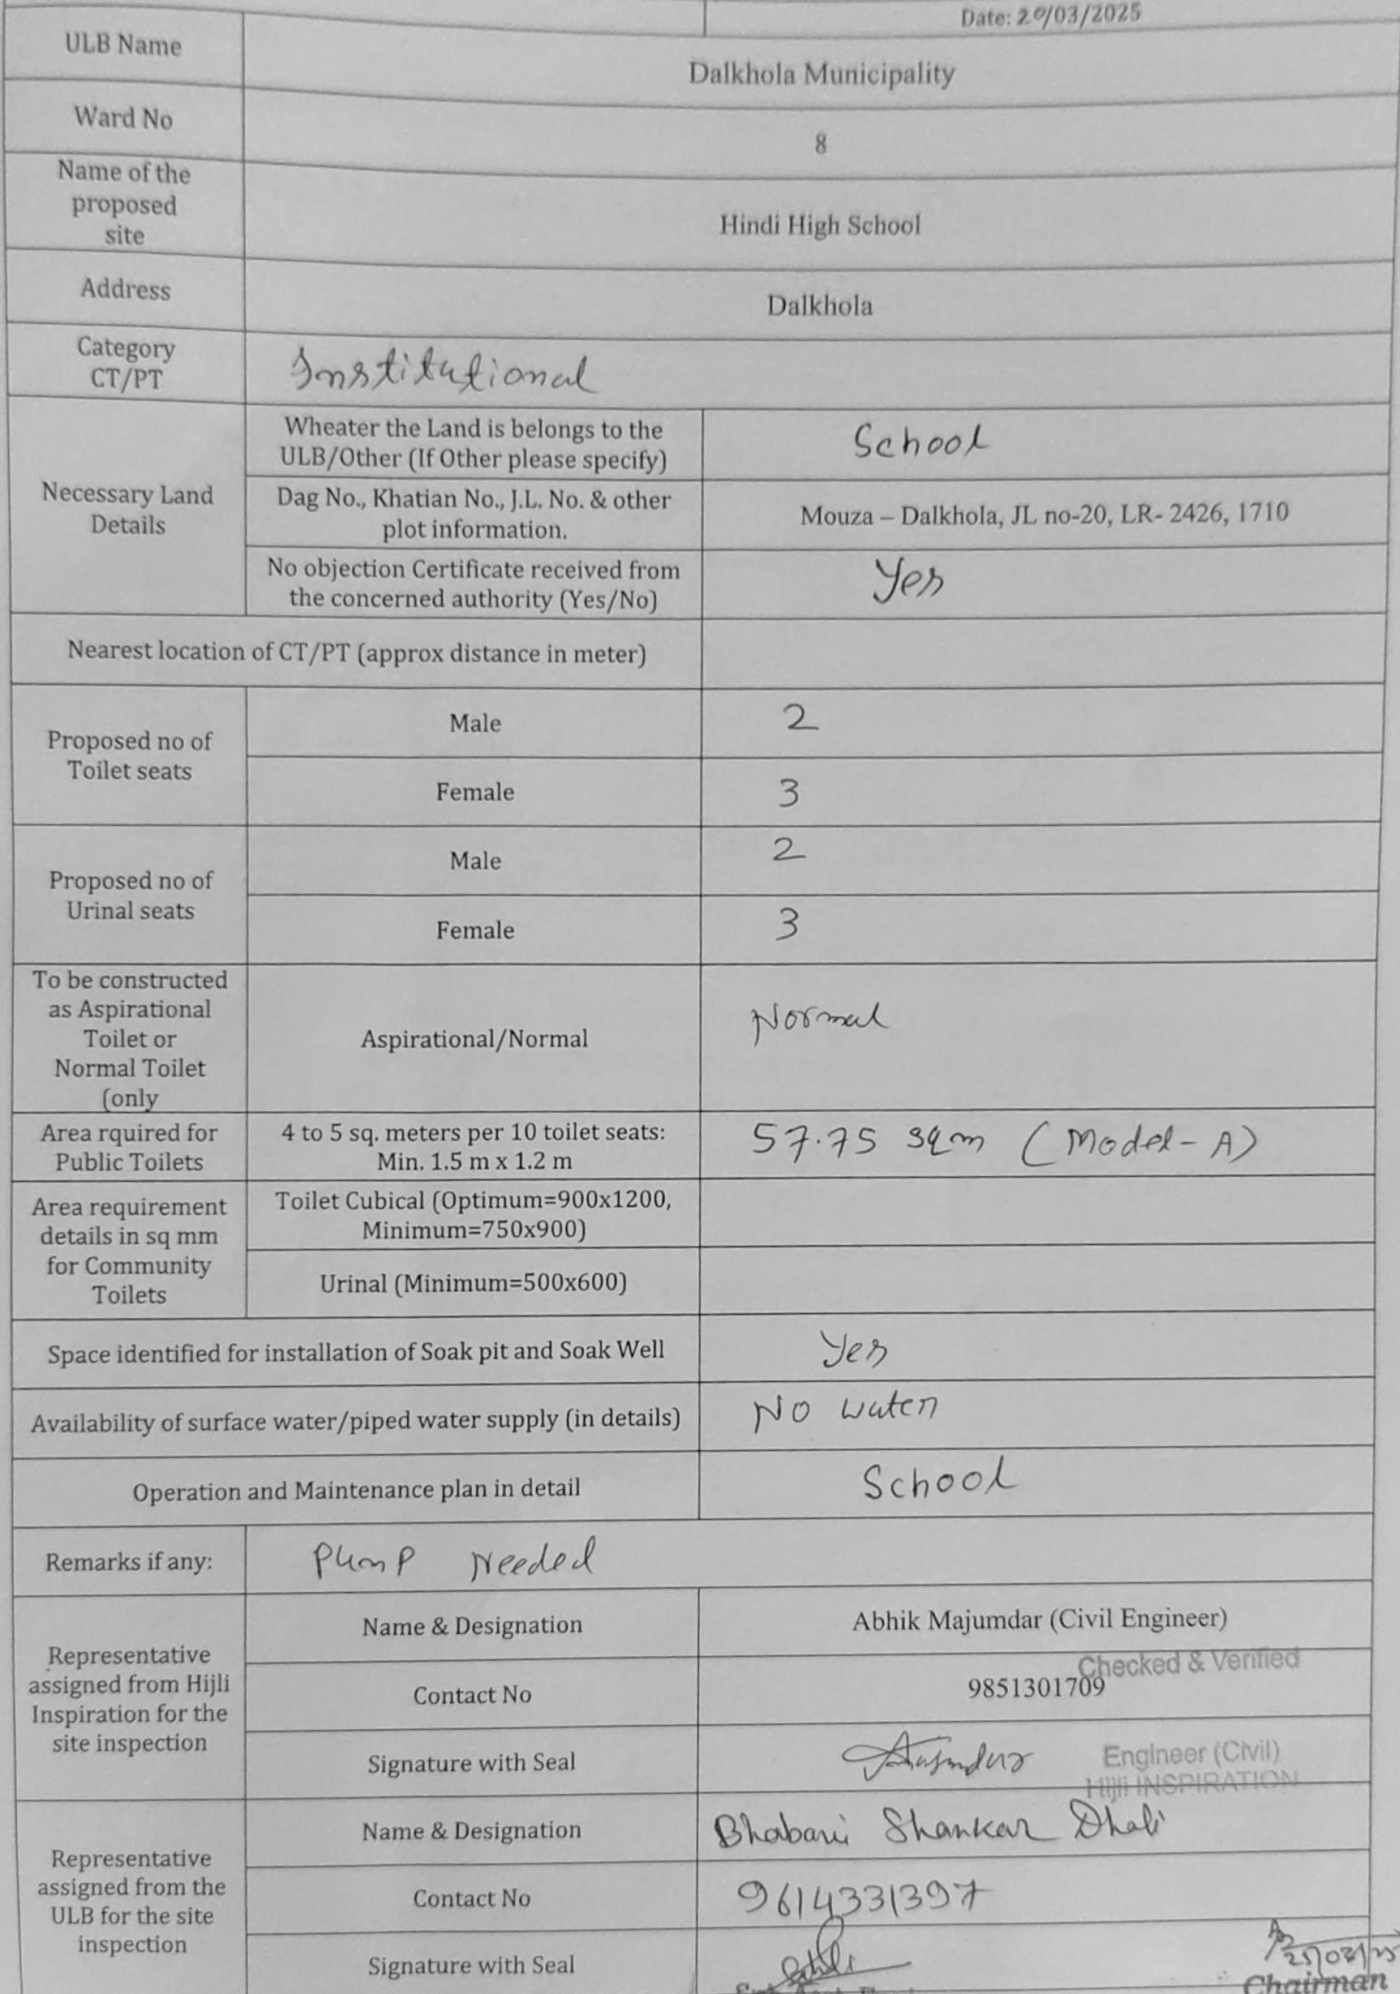 Date: 20/03/2025
ULB Name
Dalkhola Municipality
Ward No
8
Name of the
proposed
site
Hindi High School
Address
Dalkhola
Category
CT/PT
Institutional
Necessary Land
Details
Wheater the Land is belongs to the
ULB/Other (If Other please specify)
School
Dag No., Khatian No., J.L. No. & other
plot information.
Mouza – Dalkhola, JL no-20, LR- 2426, 1710
No objection Certificate received from
the concerned authority (Yes/No)
Yes
Nearest location of CT/PT (approx distance in meter)
Proposed no of
Toilet seats
Male
2
Female
3
Proposed no of
Urinal seats
Male
2
Female
3
To be constructed
as Aspirational
Toilet or
Normal Toilet
(only
Aspirational/Normal
Normal
Area rquired for
Public Toilets
4 to 5 sq. meters per 10 toilet seats:
Min. 1.5 m x 1.2 m
57.75 sqm (Model-A)
Area requirement
details in sq mm
for Community
Toilets
Toilet Cubical (Optimum=900x1200,
Minimum=750x900)
Urinal (Minimum=500x600)
Space identified for installation of Soak pit and Soak Well
Yes
Availability of surface water/piped water supply (in details)
No water
Operation and Maintenance plan in detail
School
Remarks if any:
Pump Needed
Representative
assigned from Hijli
Inspiration for the
site inspection
Name & Designation
Abhik Majumdar (Civil Engineer)
Checked & Verified
Contact No
9851301709
Signature with Seal
Engineer (Civil)
Hijli INSPIRATION
Representative
assigned from the
ULB for the site
inspection
Name & Designation
Bhabani Shankar Dhali
Contact No
9614331397
Signature with Seal
25/03/25
Chairman